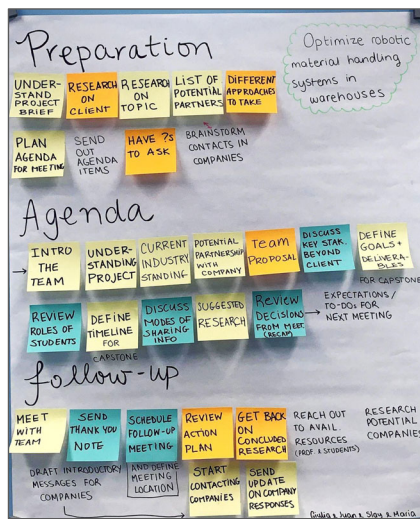 Preparation
Optimize robotic
material handling
systems in
warehouses
UNDER-
STAND
PROJECT
BRIEF
RESEARCH
ON
CLIENT
RESEARCH
ON
TOPIC
LIST OF
POTENTIAL
PARTNERS
DIFFERENT
APPROACHES
TO TAKE
PLAN
AGENDA
FOR MEETING
SEND
OUT
AGENDA
ITEMS
HAVE ?S
TO ASK
BRAINSTORM
CONTACTS IN
COMPANIES
Agenda
INTRO
THE
TEAM
UNDER-
STANDING
PROJECT
CURRENT
INDUSTRY
STANDING
POTENTIAL
PARTNERSHIP
WITH
COMPANY
Team
PROPOSAL
DISCUSS
KEY STAK.
BEYOND
CLIENT
DEFINE
GOALS +
DELIVERA-
BLES
FOR CAPSTONE
REVIEW
ROLES OF
STUDENTS
DEFINE
TIMELINE
FOR
CAPSTONE
DISCUSS
MODES OF
SHARING
INFO
SUGGESTED
RESEARCH
Review
DECISIONS
FROM MEET.
(RECAP)
EXPECTATIONS /
TO-DOs FOR
NEXT MEETING
follow-up
MEET
WITH
TEAM
SEND
THANK YOU
NOTE
SCHEDULE
FOLLOW-UP
MEETING
AND DEFINE
MEETING
LOCATION
REVIEW
ACTION
PLAN
GET BACK
ON
CONCLUDED
RESEARCH
REACH OUT
TO AVAIL.
RESOURCES
(PROF. & STUDENTS)
RESEARCH
POTENTIAL
COMPANIES
DRAFT INTRODUCTORY
MESSAGES FOR
COMPANIES
START
CONTACTING
COMPANIES
SEND
UPDATE
ON COMPANY
RESPONSES
Giulia & Juan & Stay & Maria